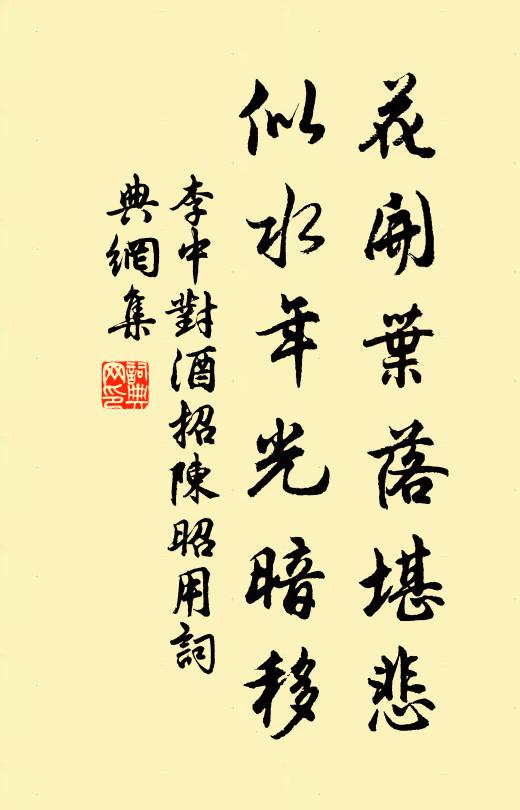 花開葉落堪悲
似水年光暗移
李中對酒招陳昭用詞
典網集
詞典
网印